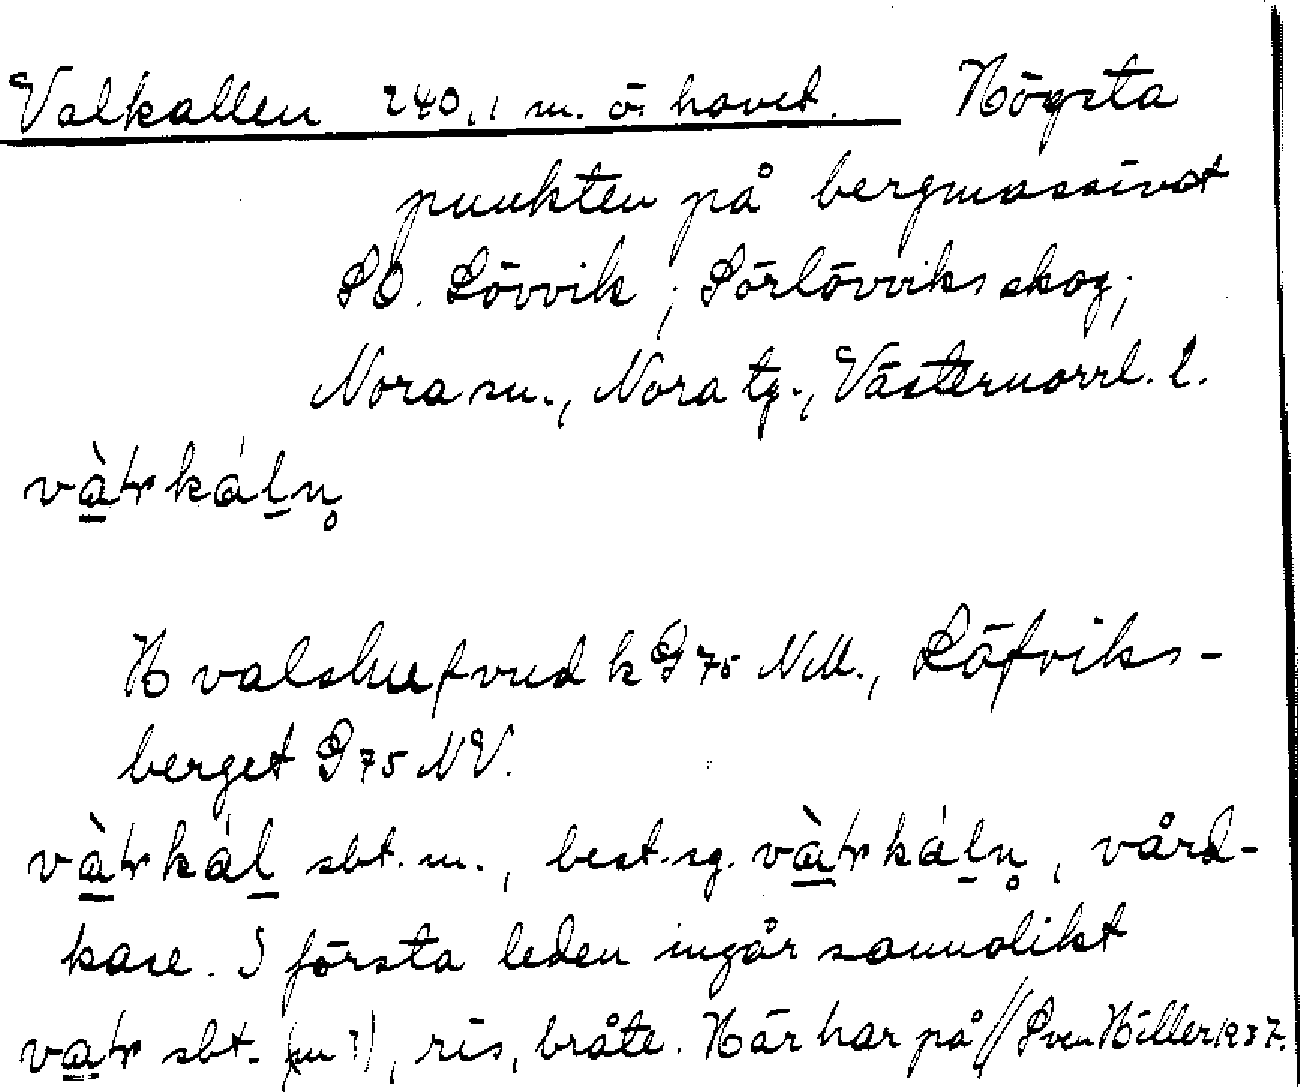 Valkallen 240,1 m. ö. havet. Högsta
punkten på bergmassivet
SO. Lövvik, Sörlövviks skog,
Nora sn., Nora tg., Västernorrl. l.
Hvalshufvud k G 75 NM., Löfviks-
berget G 75 NV.
sbt. m., best. sg. , vård-
kase. I första leden ingår sannolikt
sbt. (m ?), ris, bråte. Här har på // Sven Hiller 1937.